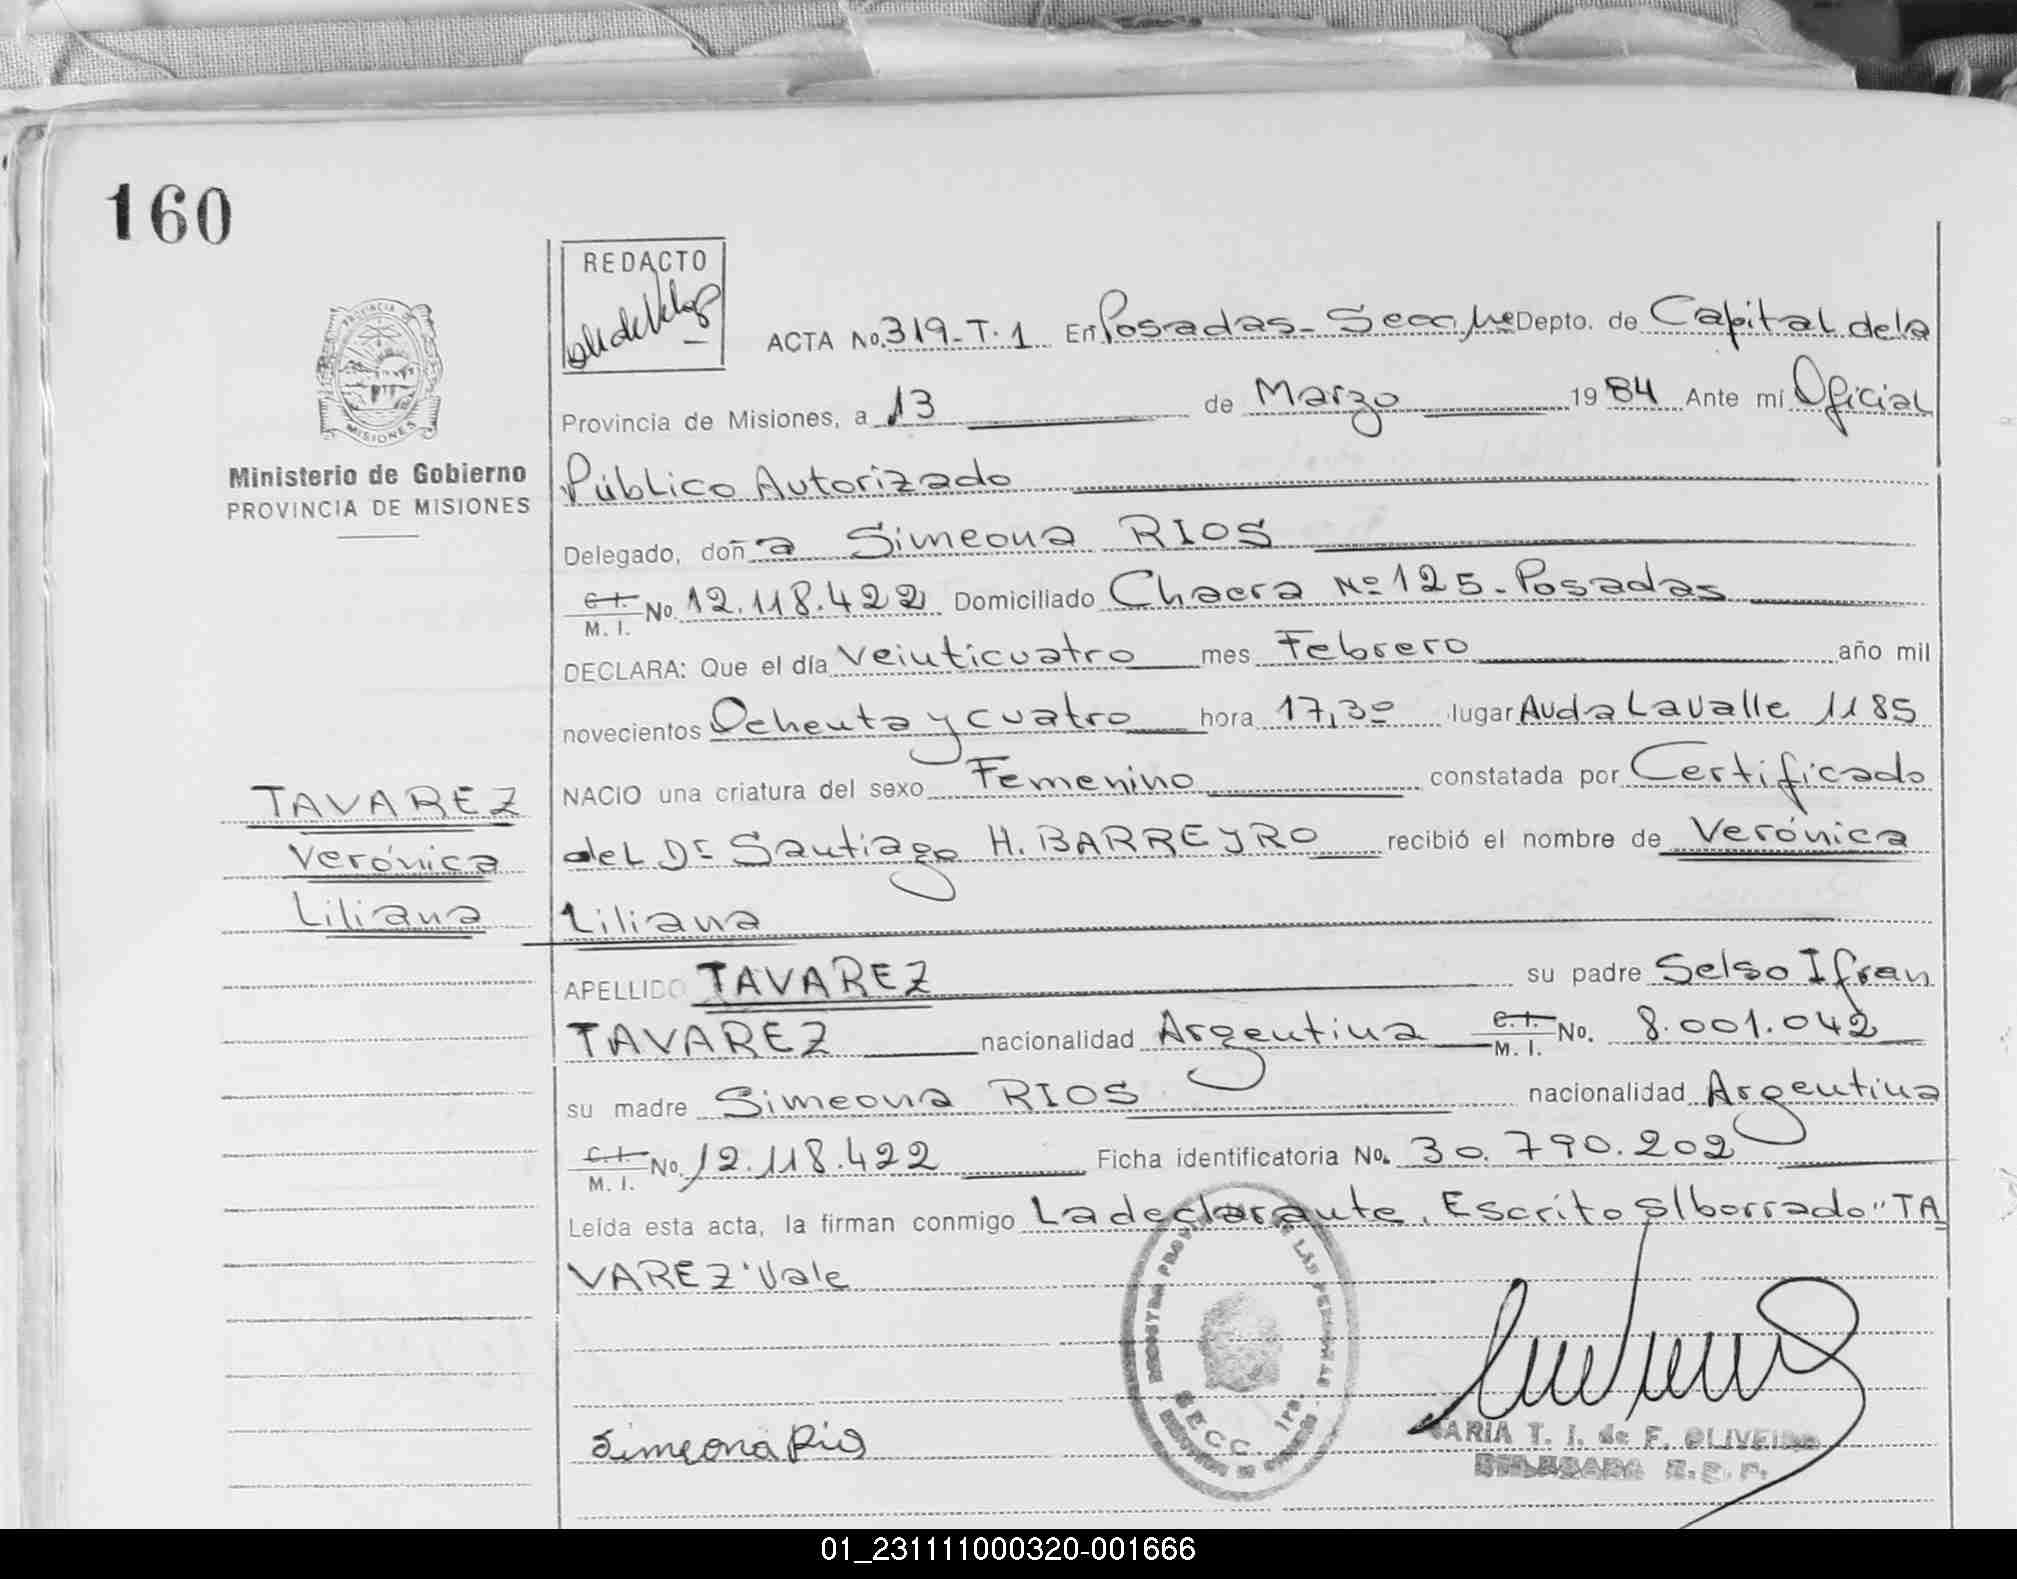 160
REDACTO
ACTA No. 319-T.1 En Posadas- Depto. de Capital de la
PROVINCIA
MISIONES
Provincia de Misiones, a 13 de Marzo 1984 Ante mí Oficial
Ministerio de Gobierno
PROVINCIA DE MISIONES
Público Autorizado
Delegado, doñ a Simeona RIOS
C.I. M.I. No. 12.118.422 Domiciliado Chacra Nº 125-Posadas
DECLARA: Que el día Veinticuatro mes Febrero año mil
novecientos Ochenta y cuatro hora 17,30 lugar Avda Lavalle 1185
TAVAREZ
NACIO una criatura del sexo Femenino constatada por Certificado
Verónica
del Dr Santiago H. BARREYRO recibió el nombre de Verónica
Liliana
Liliana
APELLIDO TAVAREZ su padre Selso Ifran
TAVAREZ nacionalidad Argentina C.I. M.I. No. 8.001.042
su madre Simeona RIOS nacionalidad Argentina
C.I. M.I. No. 12.118.422 Ficha identificatoria No. 30.790.202
Leída esta acta, la firman conmigo La declarante. Escrito s/borrado "TA
VAREZ" Vale
Simeona Rios
MARIA T. I. de F. OLIVEIRA
DELEGADA R.P.P.
SECC. 1ra.
01_231111000320-001666